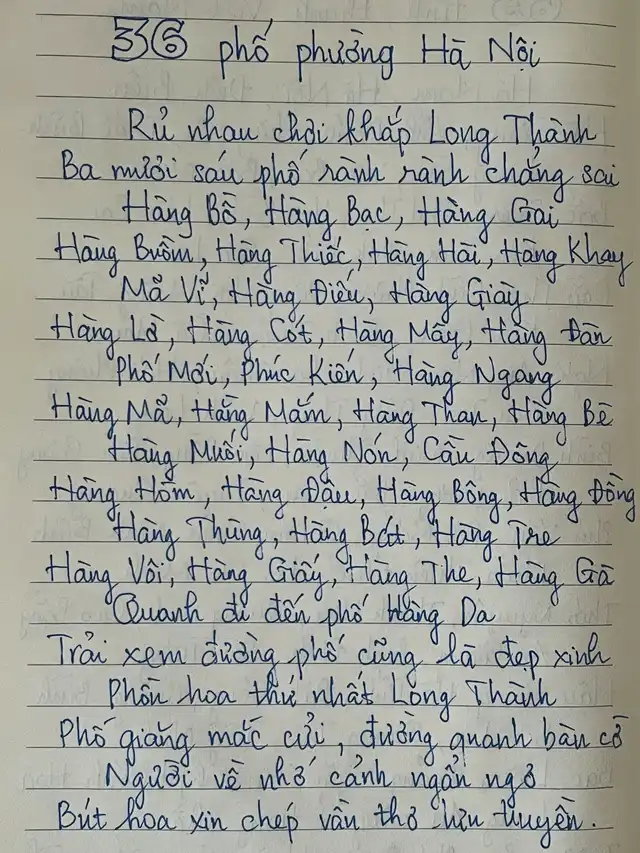 36 phố phường Hà Nội
Rủ nhau chơi khắp Long Thành
Ba mươi sáu phố rành rành chẳng sai
Hàng Bồ, Hàng Bạc, Hàng Gai
Hàng Buồm, Hàng Thiếc, Hàng Hài, Hàng Khay
Mã Vĩ, Hàng Điếu, Hàng Giày
Hàng Lờ, Hàng Cót, Hàng Mây, Hàng Đàn
Phố Mới, Phúc Kiến, Hàng Ngang
Hàng Mã, Hàng Mắm, Hàng Than, Hàng Bè
Hàng Muối, Hàng Nón, Cầu Đông
Hàng Hòm, Hàng Đậu, Hàng Bông, Hàng Đồng
Hàng Thùng, Hàng Bát, Hàng Tre
Hàng Vôi, Hàng Giấy, Hàng The, Hàng Gà
Quanh đi đến phố Hàng Da
Trải xem đường phố cũng là đẹp xinh
Phồn hoa thứ nhất Long Thành
Phố giăng mắc cửi, đường quanh bàn cờ
Người về nhớ cảnh ngẩn ngơ
Bút hoa xin chép vần thơ lưu truyền.